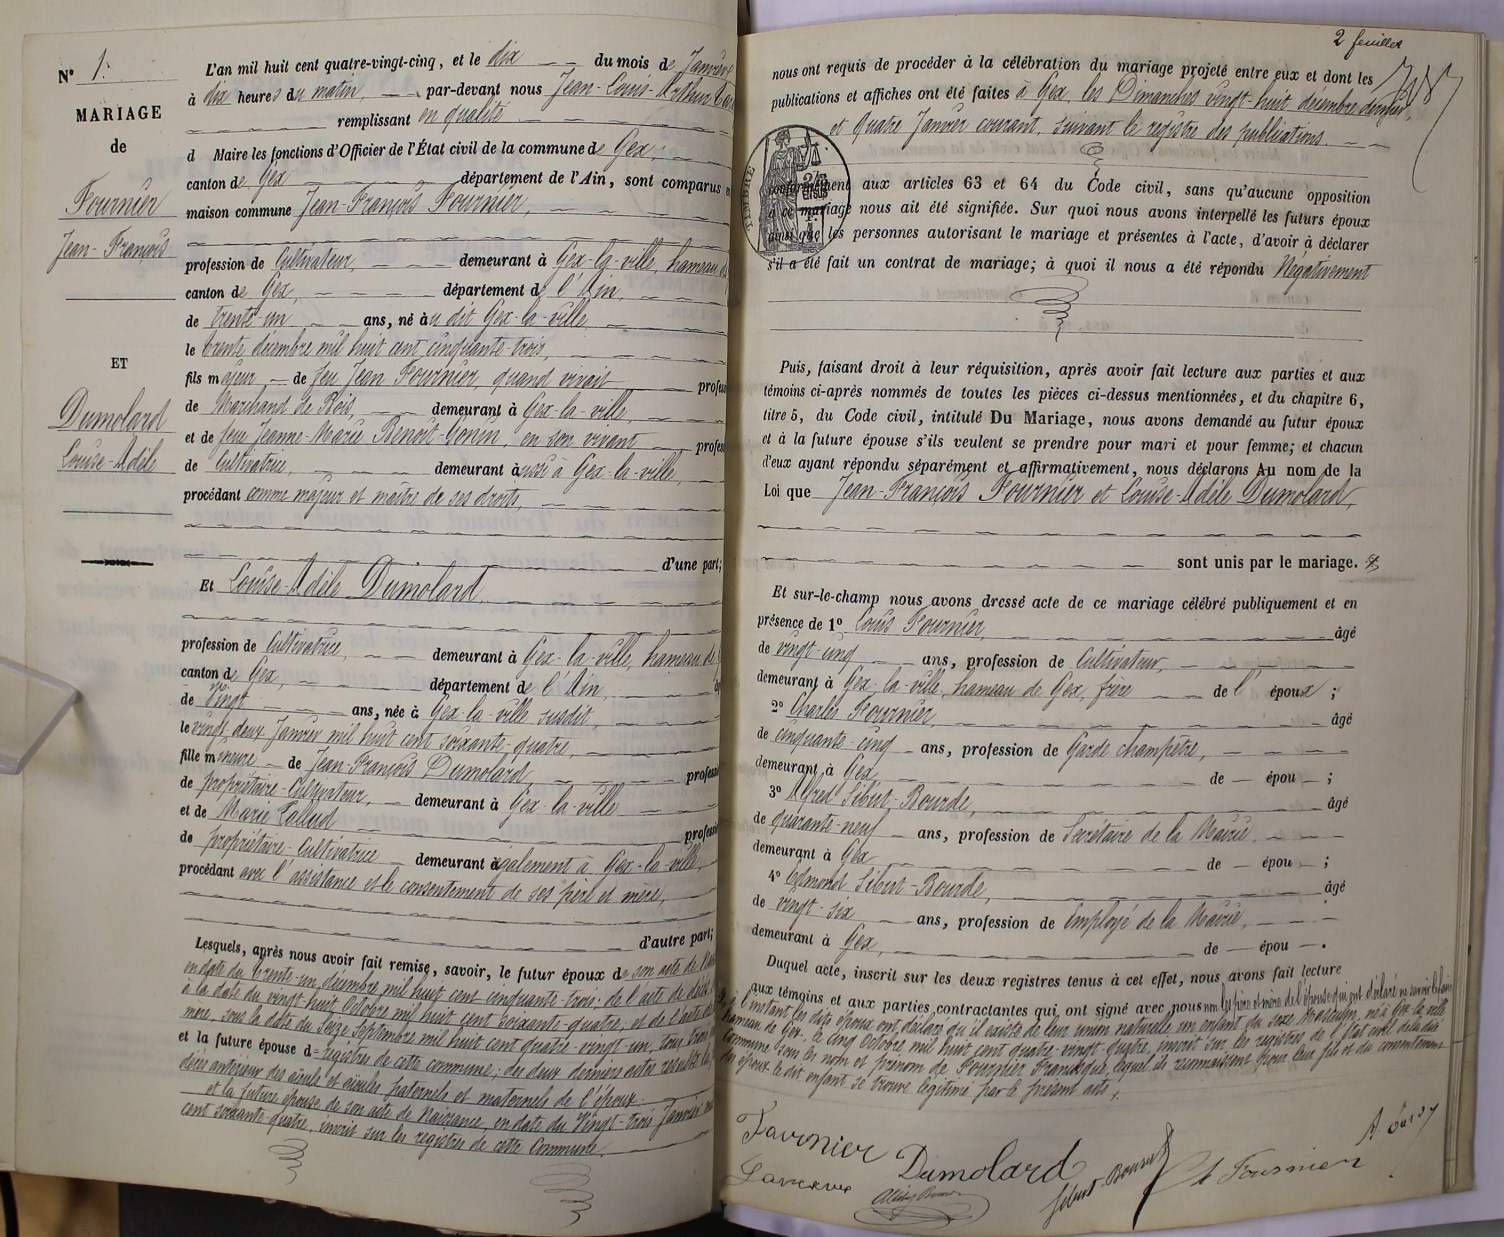 N° 1.
MARIAGE
de
Fournier
Jean-François
ET
Dumolard
Louise-Adèle
L'an mil huit cent quatre-vingt-cinq, et le dix du mois de Janvier
à dix heures du matin, par-devant nous Jean-Louis-Arthur
remplissant en qualité
d Maire les fonctions d'Officier de l'État civil de la commune de Gex,
canton de Gex département de l'Ain, sont comparus en
maison commune Jean-François Fournier,
profession de Cultivateur, demeurant à Gex-la-ville, hameau de
canton de Gex, département de l'Ain,
de trente un ans, né au dit Gex-la-ville,
le trente décembre mil huit cent cinquante-trois,
fils majeur de feu Jean Fournier, quand vivait profess
de Marchand de Bois, demeurant à Gex-la-ville,
et de feue Jeanne-Marie Benoit-Gonin, en son vivant profess
de Cultivatrice, demeurant aussi à Gex-la-ville,
procédant comme majeur et maître de ses droits,
d'une part;
Et Louise-Adèle Dumolard,
profession de Cultivatrice, demeurant à Gex-la-ville, hameau de
canton de Gex, département de l'Ain,
de vingt ans, née à Gex-la-ville susdit,
le vingt deux Janvier mil huit cent soixante-quatre,
fille mineure de Jean-François Dumolard, profess
de propriétaire-Cultivateur, demeurant à Gex-la-ville
et de Marie Lalloud profess
de propriétaire-Cultivatrice demeurant également à Gex-la-ville,
procédant avec l'assistance et le consentement de ses père et mère,
d'autre part;
Lesquels, après nous avoir fait remise, savoir, le futur époux de son acte de
en date du trente-un décembre mil huit cent cinquante-trois; de l'acte de décès
à la date du vingt huit Octobre mil huit cent soixante-quatre, et de l'acte de
mère, sous la date du seize Septembre mil huit cent quatre-vingt un, tous trois
et la future épouse d= registres de cette commune; des deux derniers actes résulte le
décès antérieur des aïeuls et aïeules paternels et maternels de l'époux.
et la future épouse de son acte de Naissance, en date du Vingt-trois Janvier mil
cent soixante-quatre, inscrit sur les registres de cette Commune.
2 feuillet
nous ont requis de procéder à la célébration du mariage projeté entre eux et dont les
publications et affiches ont été faites à Gex, les Dimanches vingt-huit décembre dernier,
et Quatre Janvier courant, suivant le registre des publications.
TIMBRE
conformément aux articles 63 et 64 du Code civil, sans qu'aucune opposition
à ce mariage nous ait été signifiée. Sur quoi nous avons interpellé les futurs époux
ainsi que les personnes autorisant le mariage et présentes à l'acte, d'avoir à déclarer
s'il a été fait un contrat de mariage; à quoi il nous a été répondu Négativement
Puis, faisant droit à leur réquisition, après avoir fait lecture aux parties et aux
témoins ci-après nommés de toutes les pièces ci-dessus mentionnées, et du chapitre 6,
titre 5, du Code civil, intitulé Du Mariage, nous avons demandé au futur époux
et à la future épouse s'ils veulent se prendre pour mari et pour femme; et chacun
d'eux ayant répondu séparément et affirmativement, nous déclarons Au nom de la
Loi que Jean-François Fournier et Louise-Adèle Dumolard,
sont unis par le mariage.
Et sur-le-champ nous avons dressé acte de ce mariage célébré publiquement et en
présence de 1° Louis Fournier, âgé
de vingt-cinq ans, profession de Cultivateur,
demeurant à Gex-la-ville, hameau de Gex, frère de l'époux;
2° Charles Fournier, âgé
de cinquante-cinq ans, profession de Garde champêtre,
demeurant à Gex, de — épou — ;
3° Alfred Sibut-Bourde, âgé
de quarante-neuf ans, profession de Secrétaire de la Mairie,
demeurant à Gex de — épou — ;
4° Edmond Sibut-Bourde, âgé
de vingt-six ans, profession de Employé de la Mairie,
demeurant à Gex, de — épou —.
Duquel acte, inscrit sur les deux registres tenus à cet effet, nous avons fait lecture
aux témoins et aux parties contractantes qui ont signé avec nous non les père et mère de l'épouse qui ont déclaré ne savoir le faire
à l'instant les dits époux ont déclaré qu'il existe de leur union naturelle un enfant du sexe Masculin, né à Gex-la-ville
hameau de Gex, le cinq Octobre mil huit cent quatre-vingt-quatre, inscrit sur les registres de l'État civil de la dite
Commune sous les nom et prénom de Fournier François, lequel ils reconnaissent pour leur fils et du consentement
des époux le dit enfant se trouve légitimé par le présent acte.
Fournier
Dumolard
Sibut-Bourde
Fournier